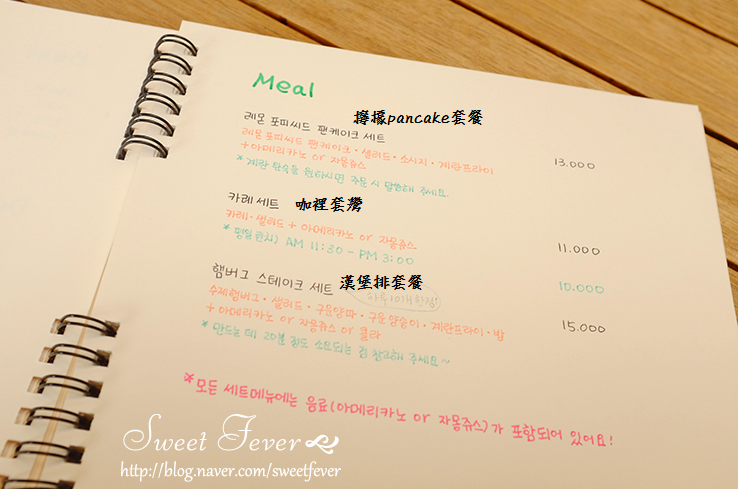 Meal
檸檬pancake套餐
레몬 포피씨드 팬케이크 세트
레몬 포피씨드 팬케이크·샐러드·소시지·계란프라이 13.000
+아메리카노 or 자몽쥬스
*계란 반숙을 원하시면 주문 시 말씀해 주세요.
카레 세트 咖裡套餐
카레·샐러드 + 아메리카노 or 자몽쥬스 11.000
*평일 런치) AM 11:30 - PM 3:00 10.000
햄버그 스테이크 세트 漢堡排套餐
하루 10개 한정!
수제햄버그·샐러드·구운양파·구운양송이·계란프라이·밥 15.000
+아메리카노 or 자몽쥬스 or 콜라
*만드는데 20분 정도 소요되는 점 참고해 주세요~
*모든 세트메뉴에는 음료(아메리카노 or 자몽쥬스)가 포함되어 있어요!
Sweet Fever
http://blog.naver.com/sweetfever